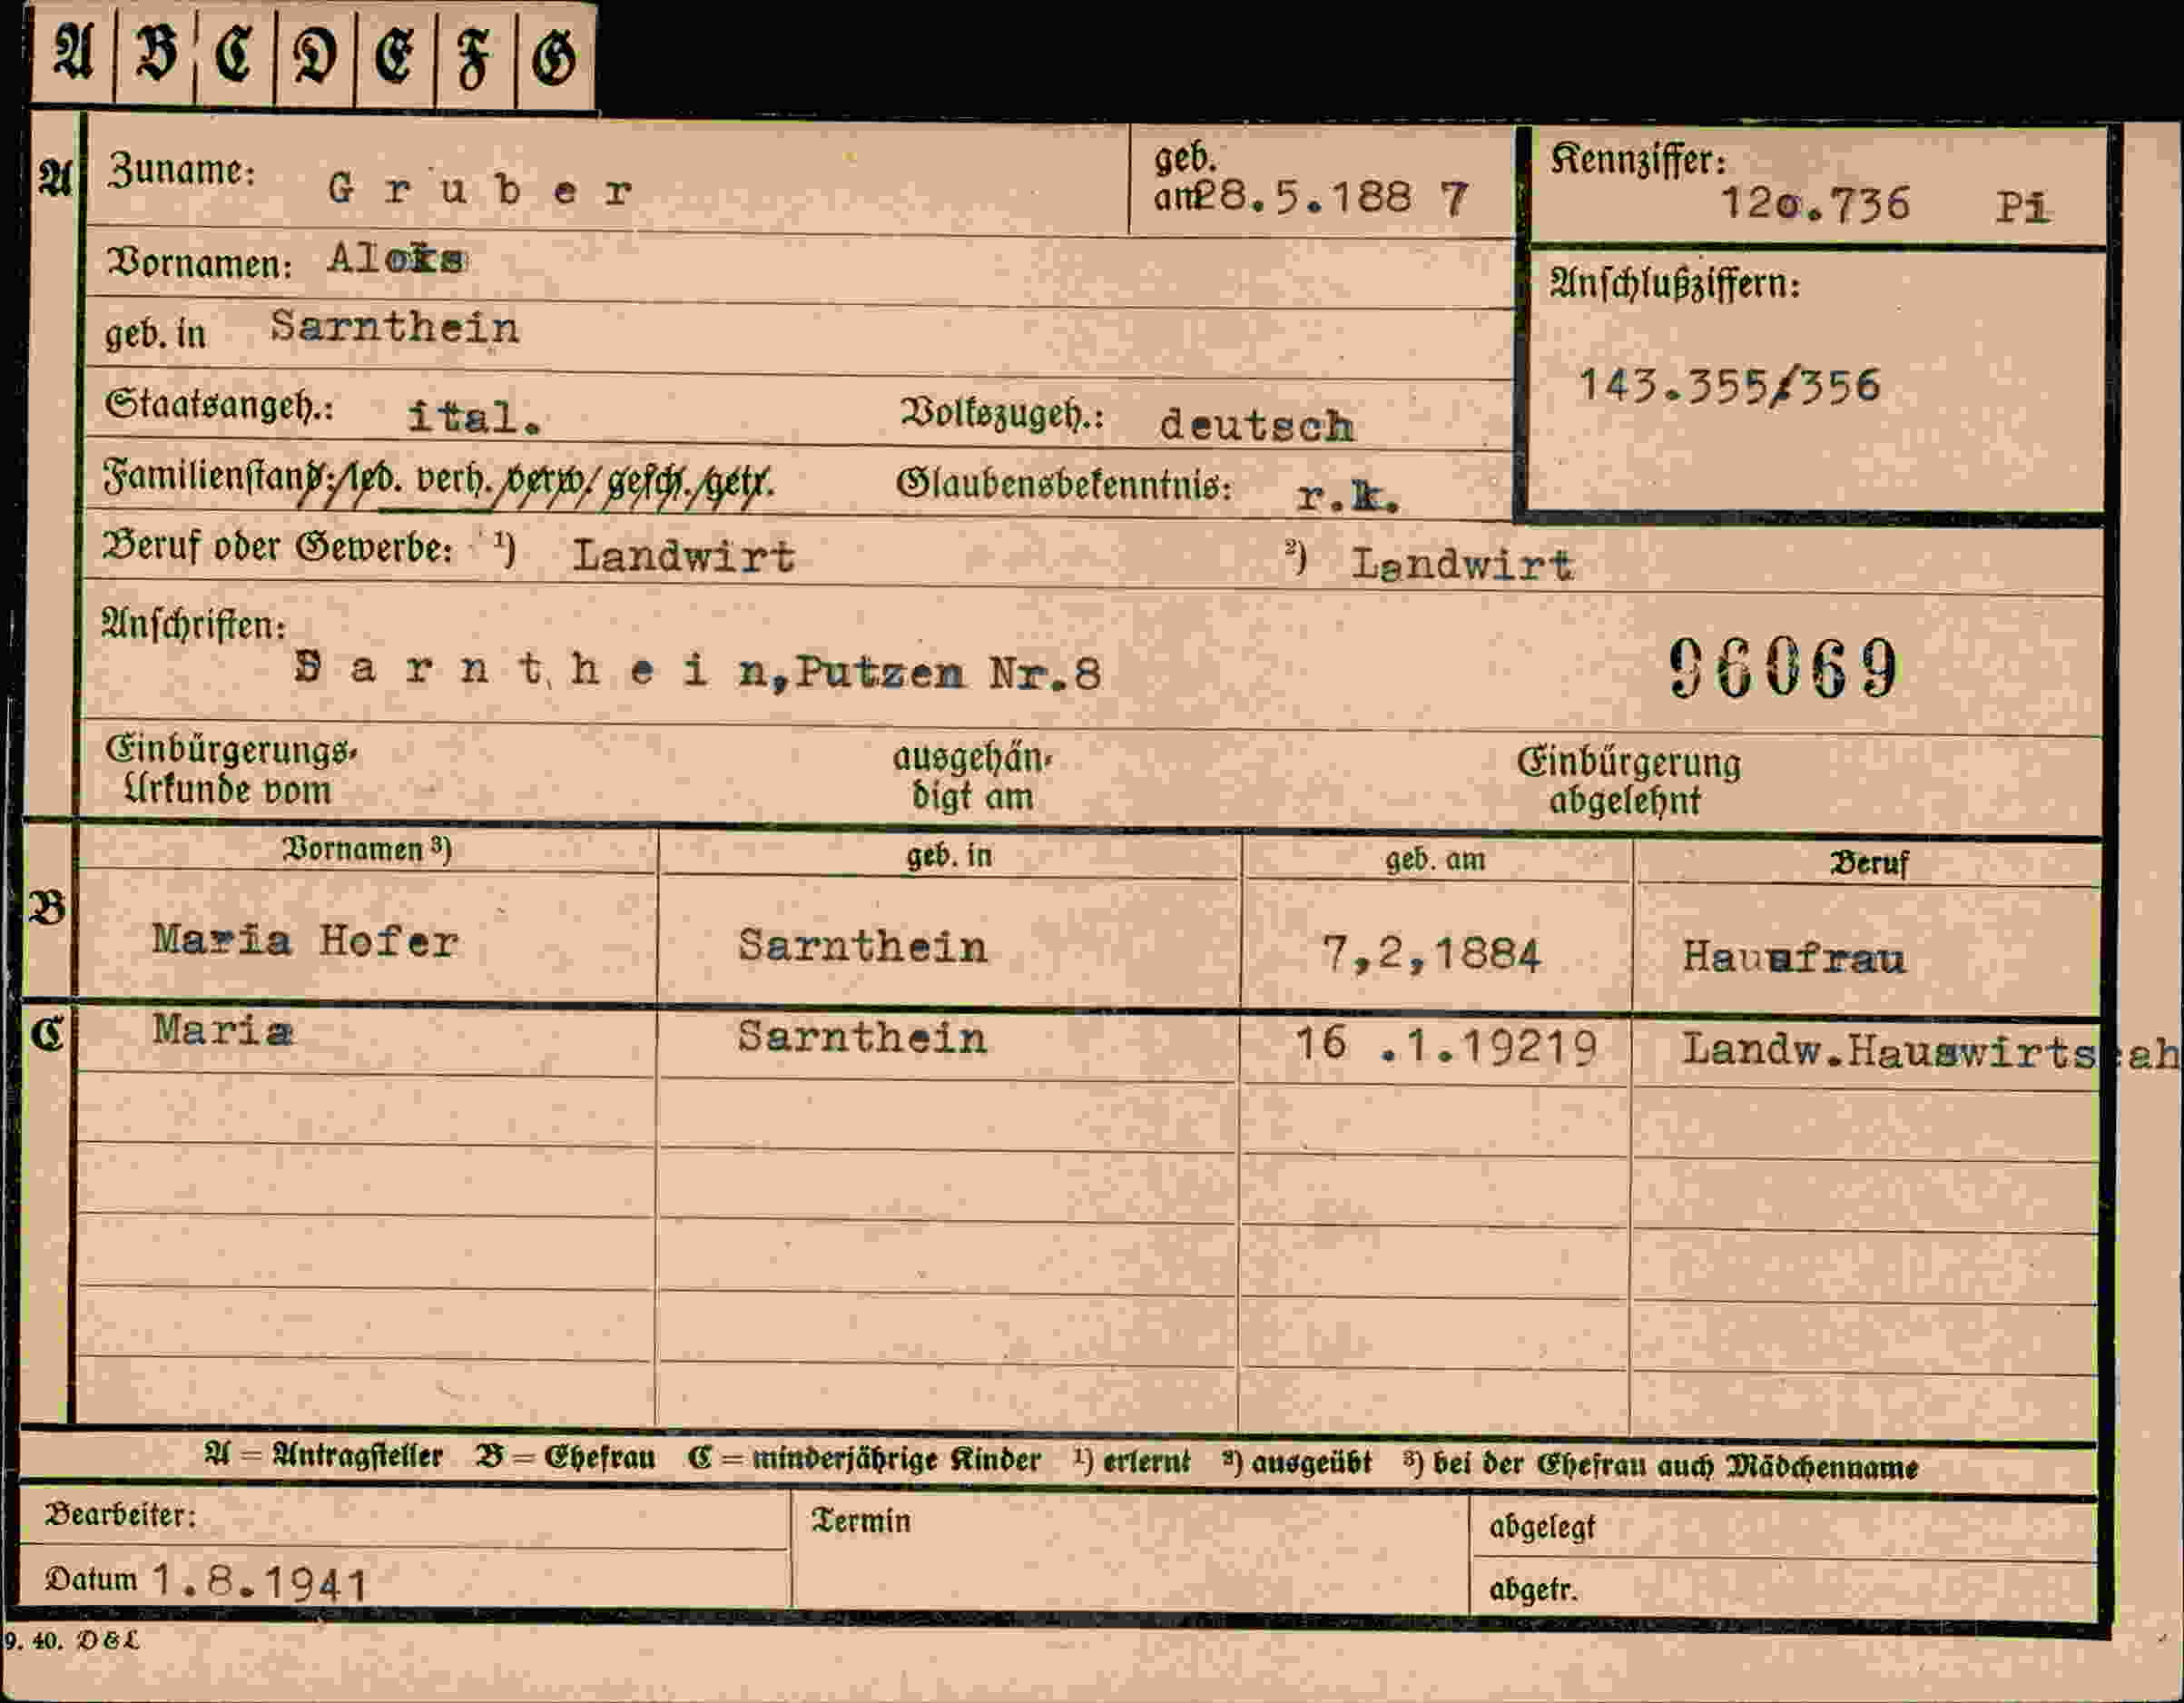 A B C D E F G
A Zuname: Gruber geb. am 28.5.188 7 Kennziffer: 12o.736 Pi
Vornamen: Alois
geb. in Sarnthein Anschlußziffern:
Staatsangeh.: ital. Volkszugeh.: deutsch 143.355/356
Familienstand: led. verh. verw. gesch. getr. Glaubensbekenntnis: r.k.
Beruf oder Gewerbe: ¹) Landwirt ²) Landwirt
Anschriften:
Sarnthein, Putzen Nr.8 96069
Einbürgerungs- ausgehän- Einbürgerung
Urkunde vom digt am abgelehnt
Vornamen ³) geb. in geb. am Beruf
B Maria Hofer Sarnthein 7,2,1884 Hausfrau
C Maria Sarnthein 16 .1.19219 Landw.Hauswirts
A = Antragsteller B = Ehefrau C = minderjährige Kinder ¹) erlernt ²) ausgeübt ³) bei der Ehefrau auch Mädchenname
Bearbeiter: Termin abgelegt
Datum 1.8.1941 abgetr.
9. 40. D&L